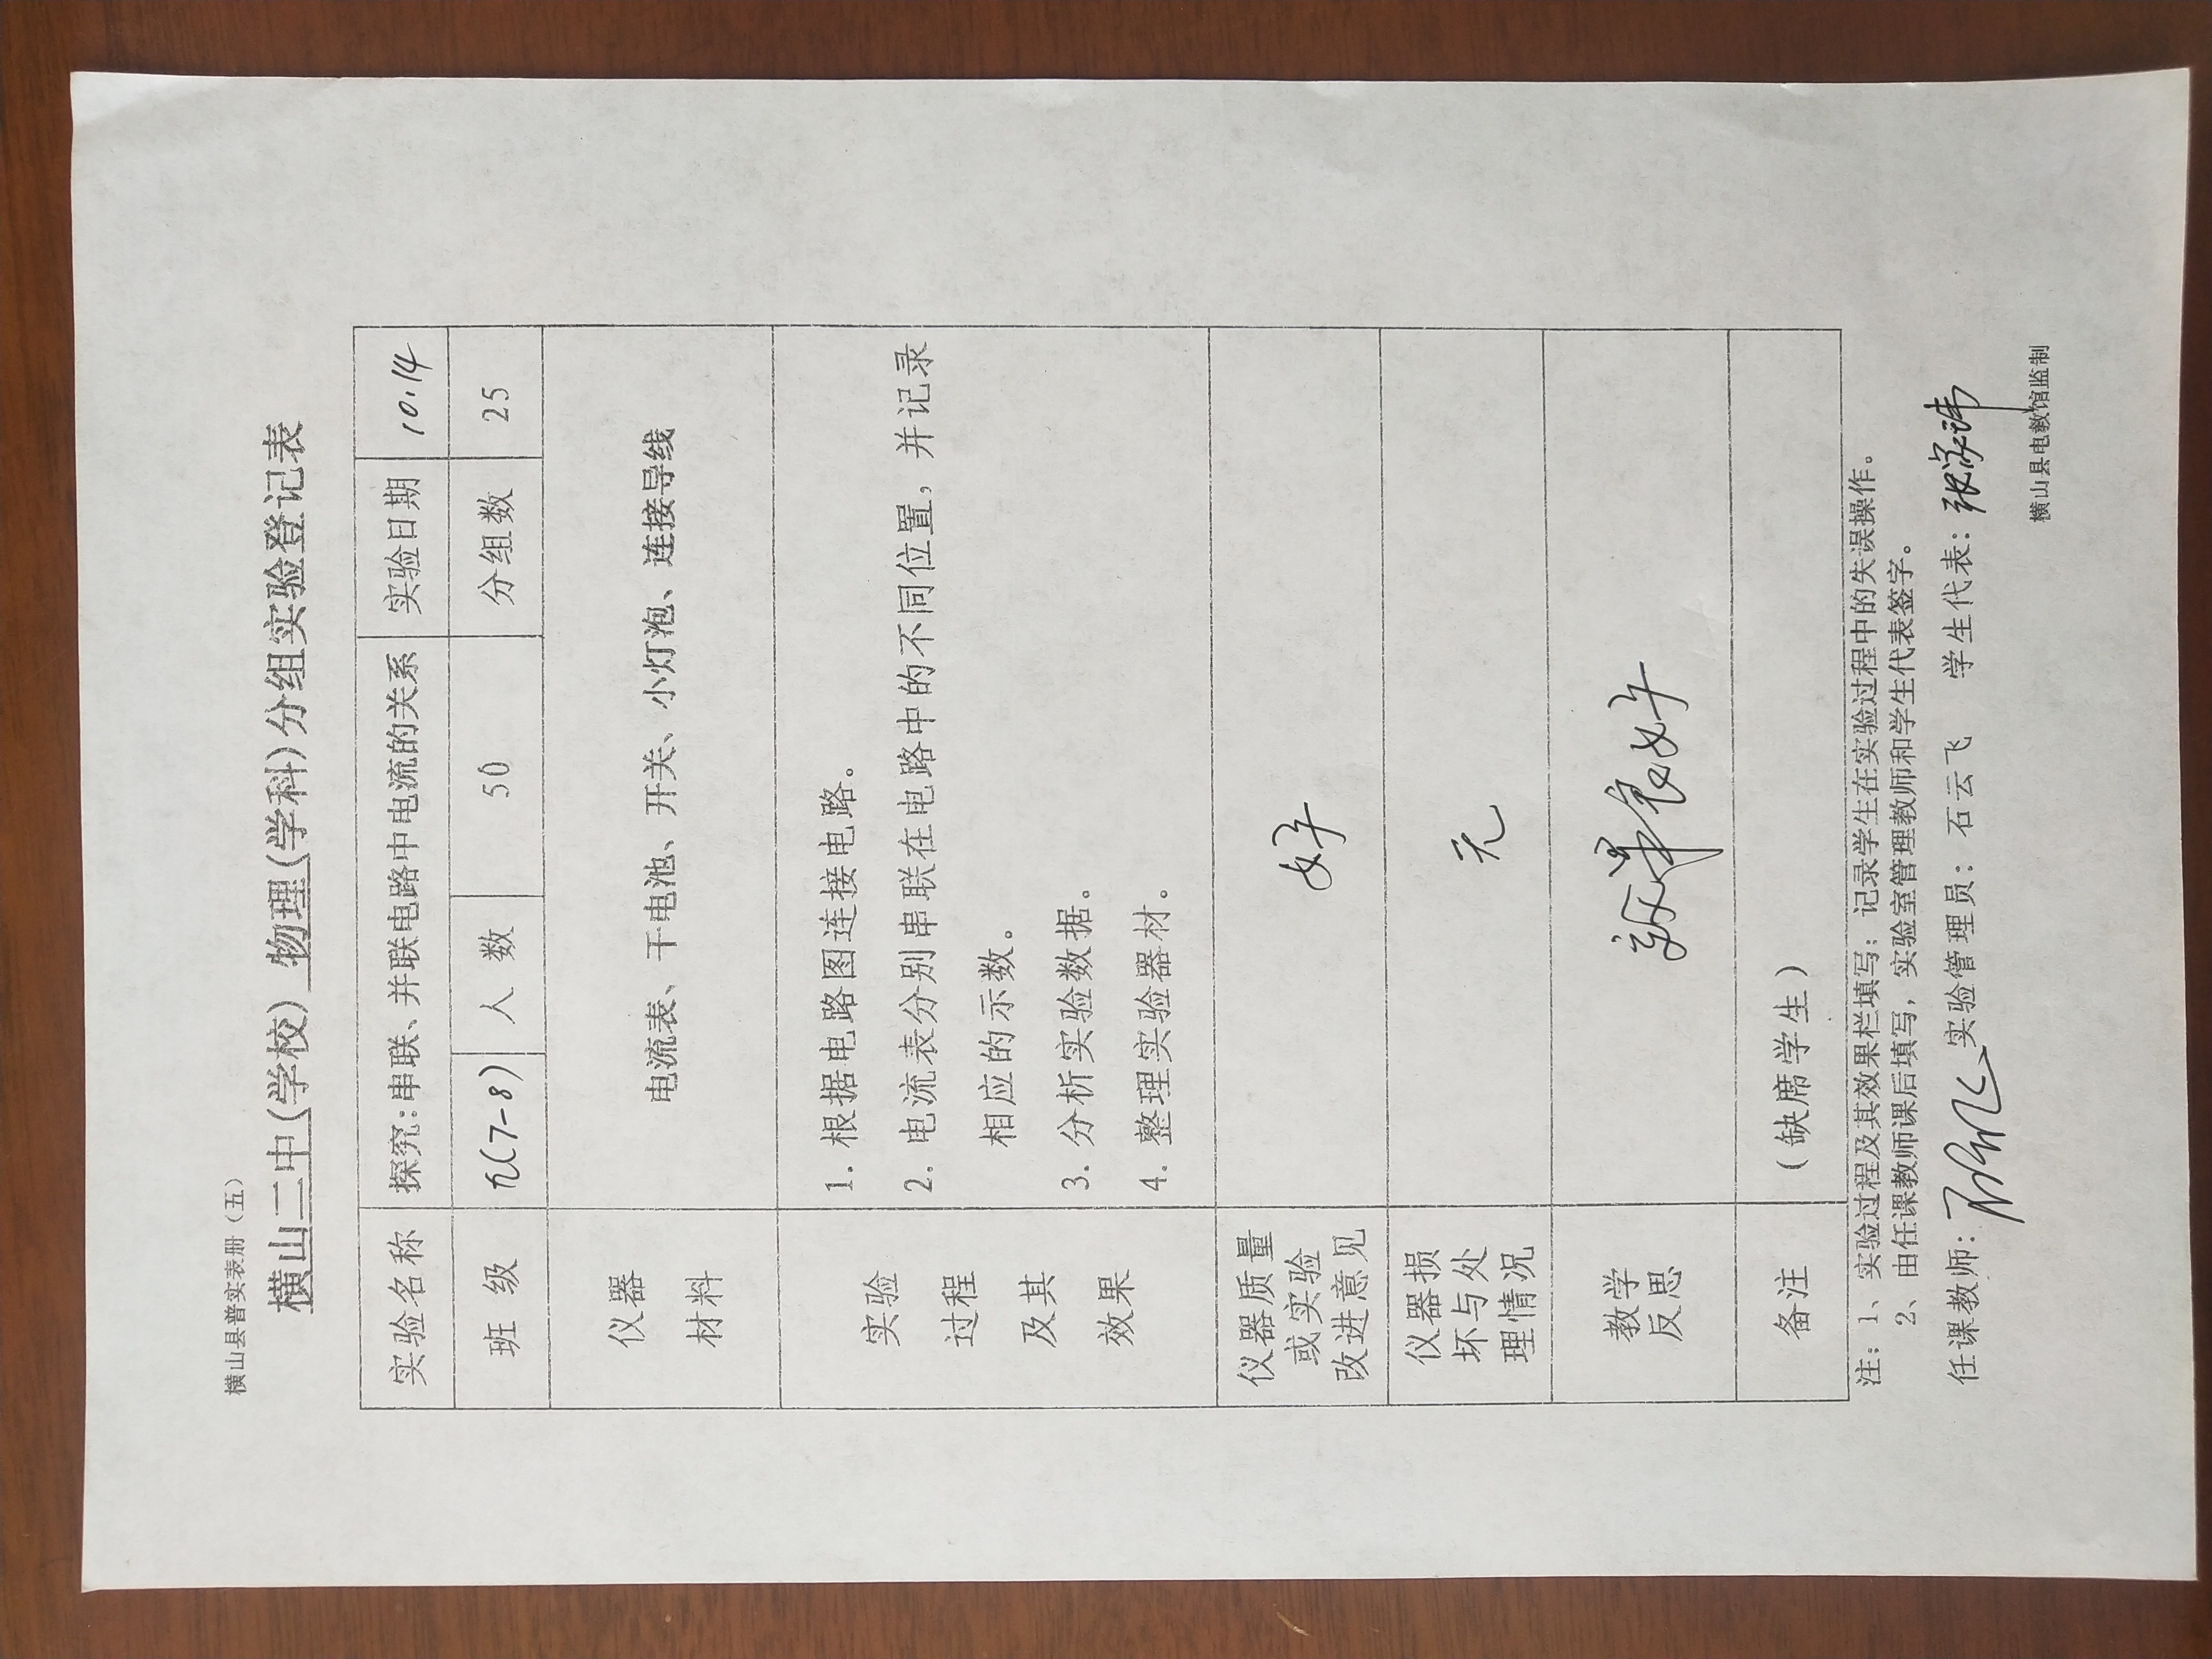 横山县普实表册（五）
横山二中(学校) 物理(学科)分组实验登记表
实验名称 探究:串联、并联电路中电流的关系 实验日期 10.14
班 级 九(7-8) 人 数 50 分组数 25
仪器
材料
电流表、干电池、开关、小灯泡、连接导线
实验
过程
及其
效果
1. 根据电路图连接电路。
2. 电流表分别串联在电路中的不同位置，并记录
相应的示数。
3. 分析实验数据。
4. 整理实验器材。
仪器质量
或实验
改进意见
好
仪器损
坏与处
理情况
无
教学
反思
效果良好
备注 （缺席学生）
注：1、实验过程及其效果栏填写：记录学生在实验过程中的失误操作。
2、由任课教师课后填写，实验室管理教师和学生代表签字。
任课教师： 实验管理员：石云飞 学生代表：
横山县电教馆监制